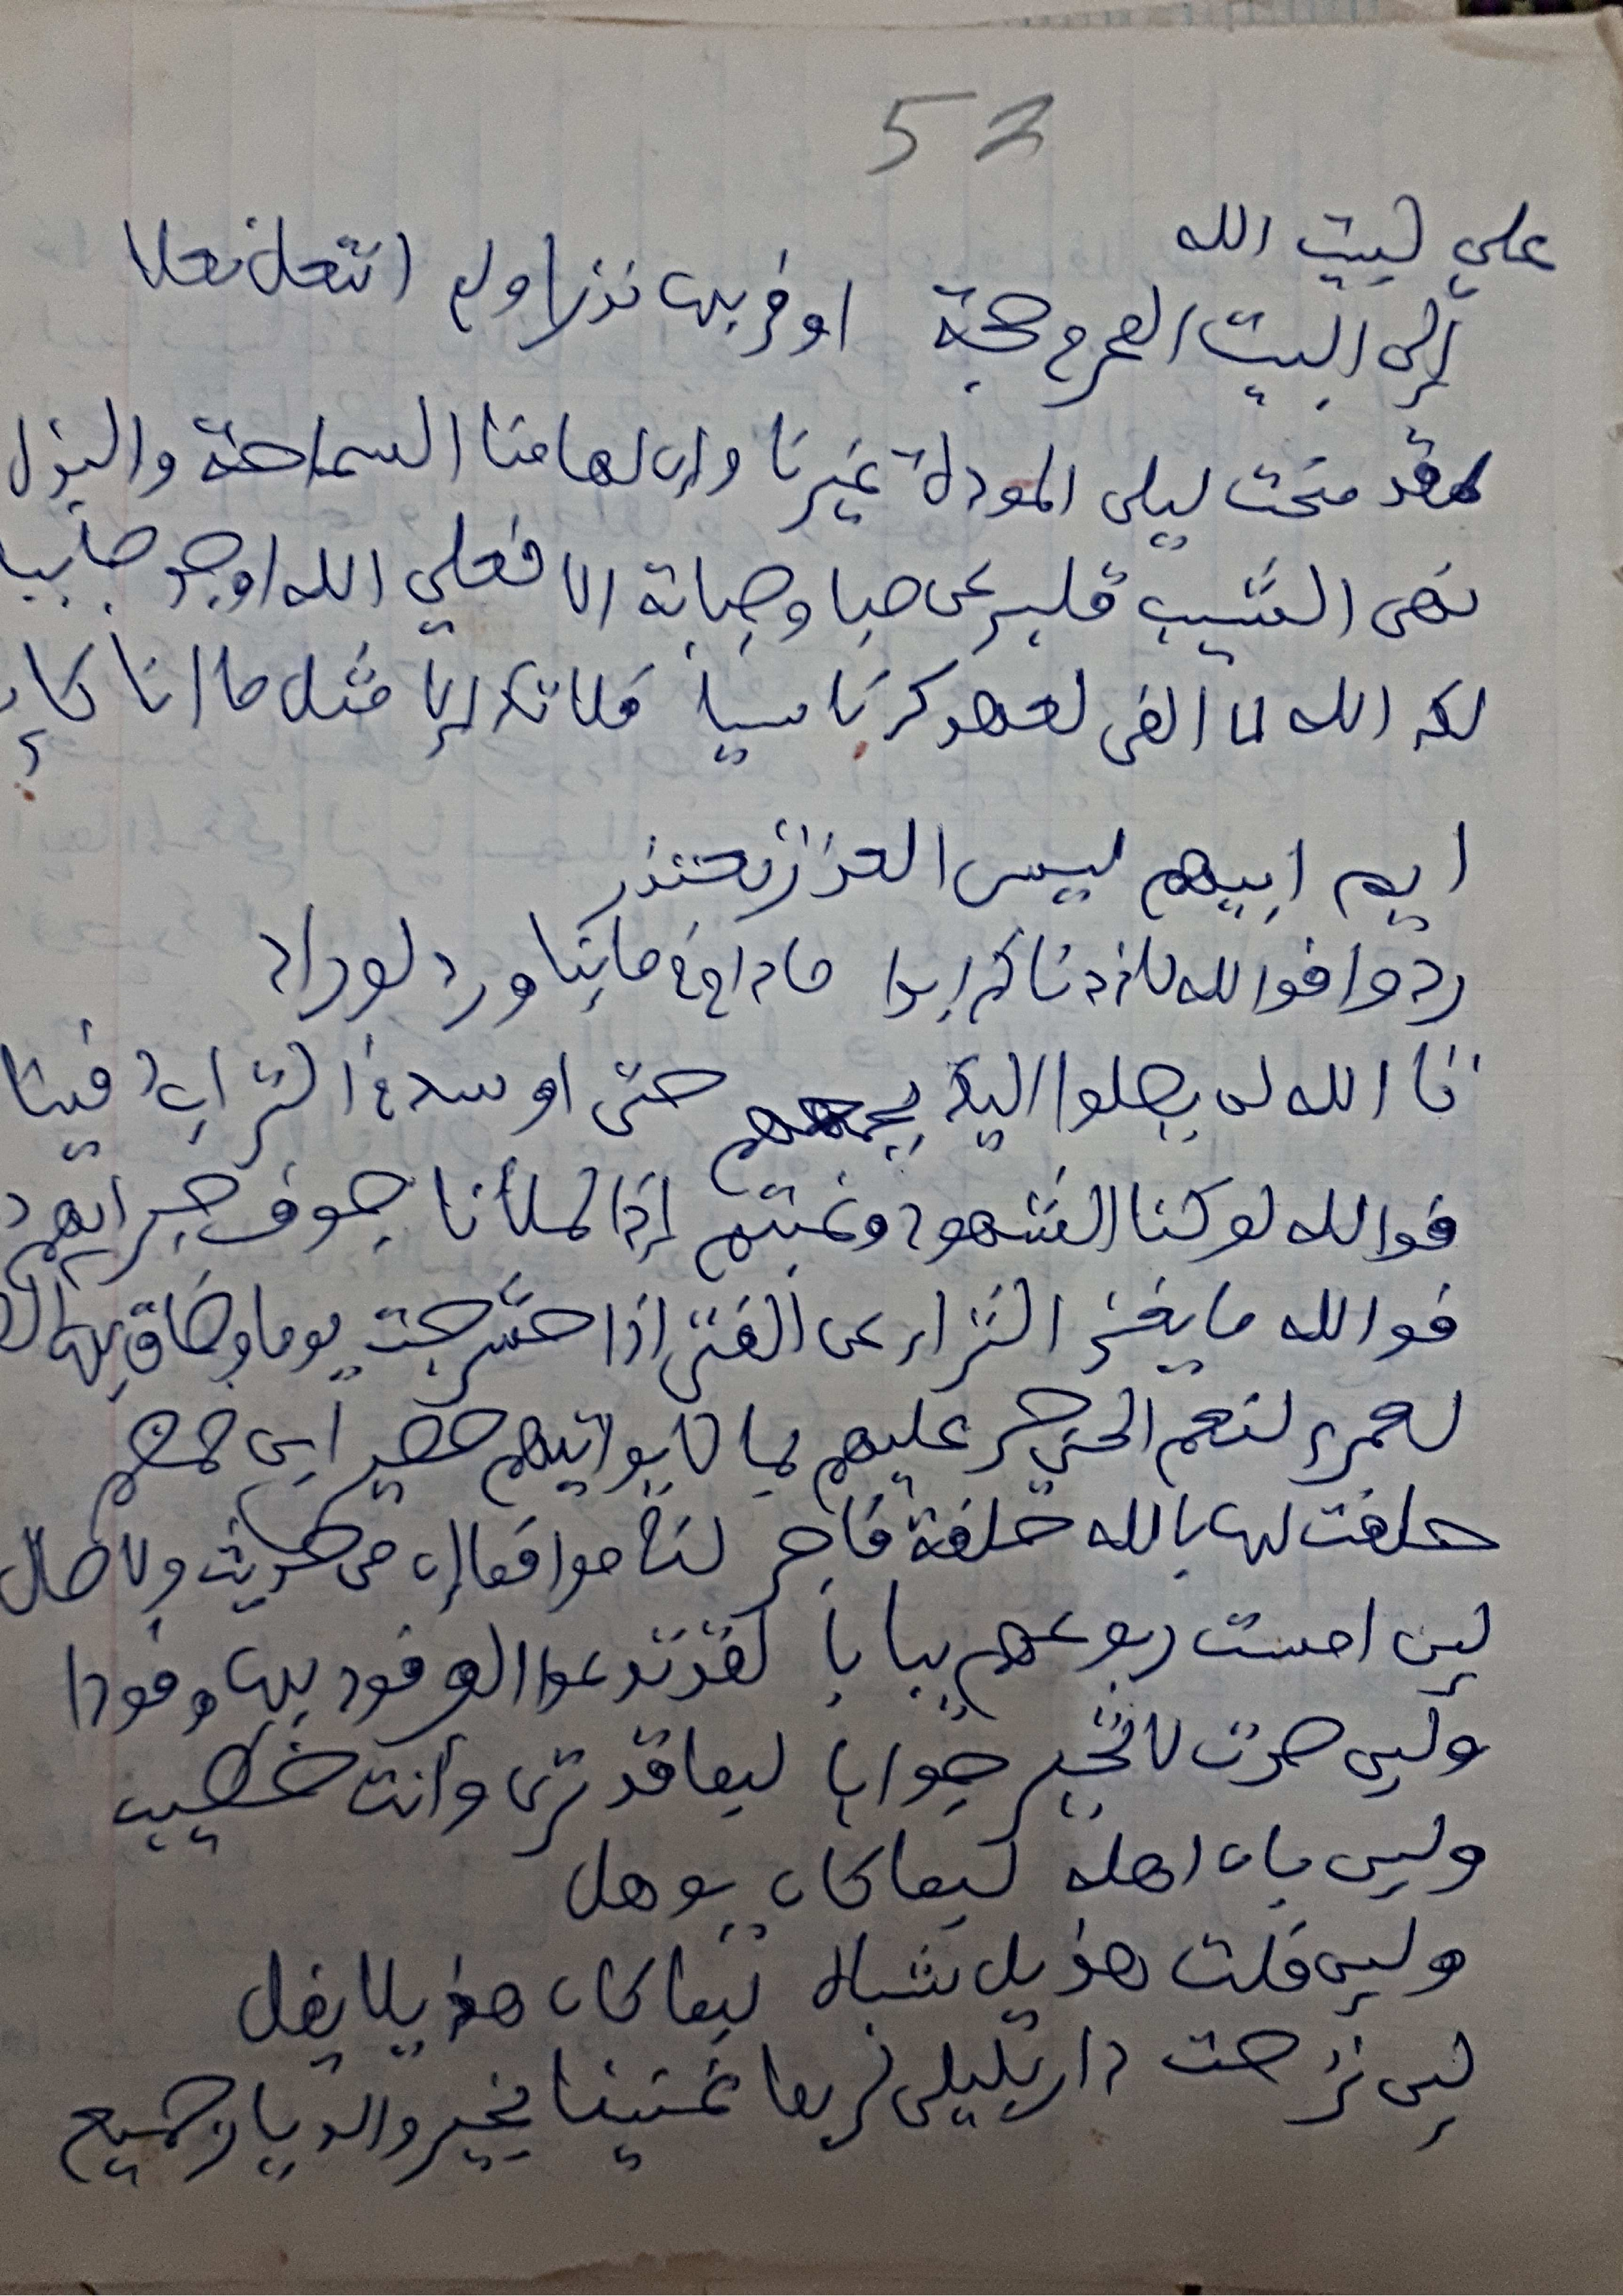 52
علي لبيت الله
إلى البيت المحرم حجة اوفي بها نذرا ولم انتعل نعلا
لقد منحت ليلى المودة غيرنا وإن لها منا السماحة والبذل
نهى الشيب قلبي عن صبا وصبابة الا فعلي الله اوجد صابيا
لك الله لا ألفى لعهدك ناسيا فلا تك إلا مثل ما انا كان
ايم ابيهم ليس العذار بعتذر
ردوا فوالله لا زدناكم ابدا مادام في مائنا ورد لوراد
تا الله لن يصلوا اليك بجمعهم حتى اوسد في التراب دفينا
فوالله لو كنا الشهود وغبتم إذا لملأنا جوف جيرانهم د
فوالله ما يغني الثراء عن الفتى إذا حشرجت يوما وضاق بها
لعمري لنعم الحي جر عليهم بما لا يواتيهم حصين ابن ضمضم
حلفت لها بالله حلفة فاجر لناموا فما إن من حديث ولا صال
لئن امست ربوعهم يبابا لقد تدعوا الوفود بها وفودا
ولئن صرت لا تحير جوابا لبما قد ترى وأنت خطيب
ولئن بان اهله لبما كان يوهل
ولئن فلت هذيل شباه لبما كان هذيلا يفل
لئن نزحت دار بليلى لربما غنينا بخير والديار جميع